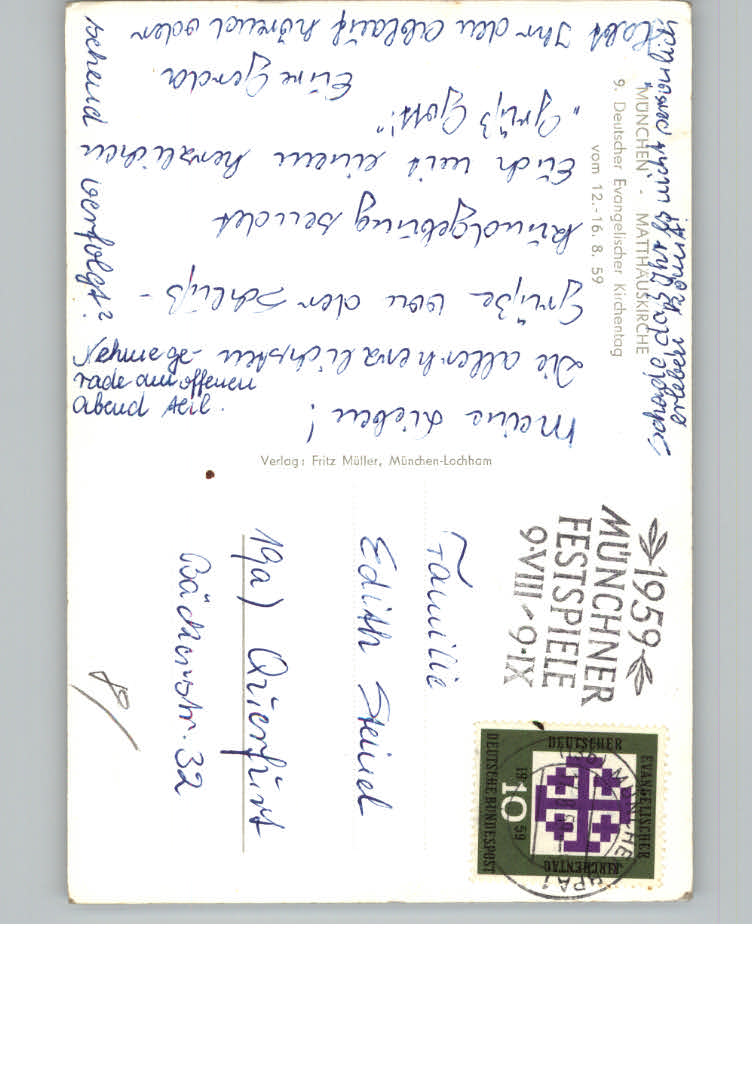 "MÜNCHEN - MATTHÄUSKIRCHE
9. Deutscher Evangelischer Kirchentag
vom 12.-16. 8. 59
Meine Lieben!
Die allerherzlichsten
Grüße von der Schluß-
kundgebung sendet
Euch mit einem herzlichen
"Grüß Gott!"
Eure Gerda
Habt Ihr den Ablauf hörend oder
sehend verfolgt?
Schade, daß Ihr es nicht persönlich
erleben könnt!
Nehme ge-
rade am offenen
Abend teil.
Verlag: Fritz Müller, München-Lochham
1959
MÜNCHNER
FESTSPIELE
9.VIII - 9.IX
DEUTSCHER
EVANGELISCHER
KIRCHENTAG
DEUTSCHE BUNDESPOST
19 59
10
Familie
Edith Steinel
19a) Querfurt
Bäckerstr. 32
8